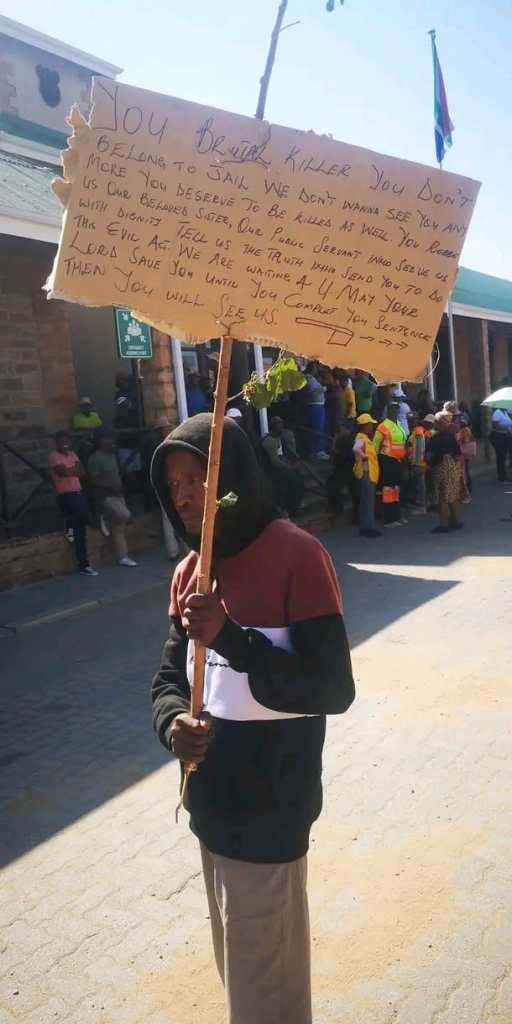 YOU BRUTAL KILLER YOU DON'T
BELONG TO JAIL WE DON'T WANNA SEE YOU ANY
MORE YOU DESERVE TO BE KILLED AS WELL. YOU ROBBED
US OUR BELOVED SISTER, OUR PUBLIC SERVANT WHO SERVE US
WITH DIGNITY TELL US THE TRUTH WHO SEND YOU TO DO
THIS EVIL ACT. WE ARE WAITING 4 U MAY YOUR
LORD SAVE YOU UNTIL YOU COMPLET YOU SENTENCE
THEN YOU WILL SEE US.